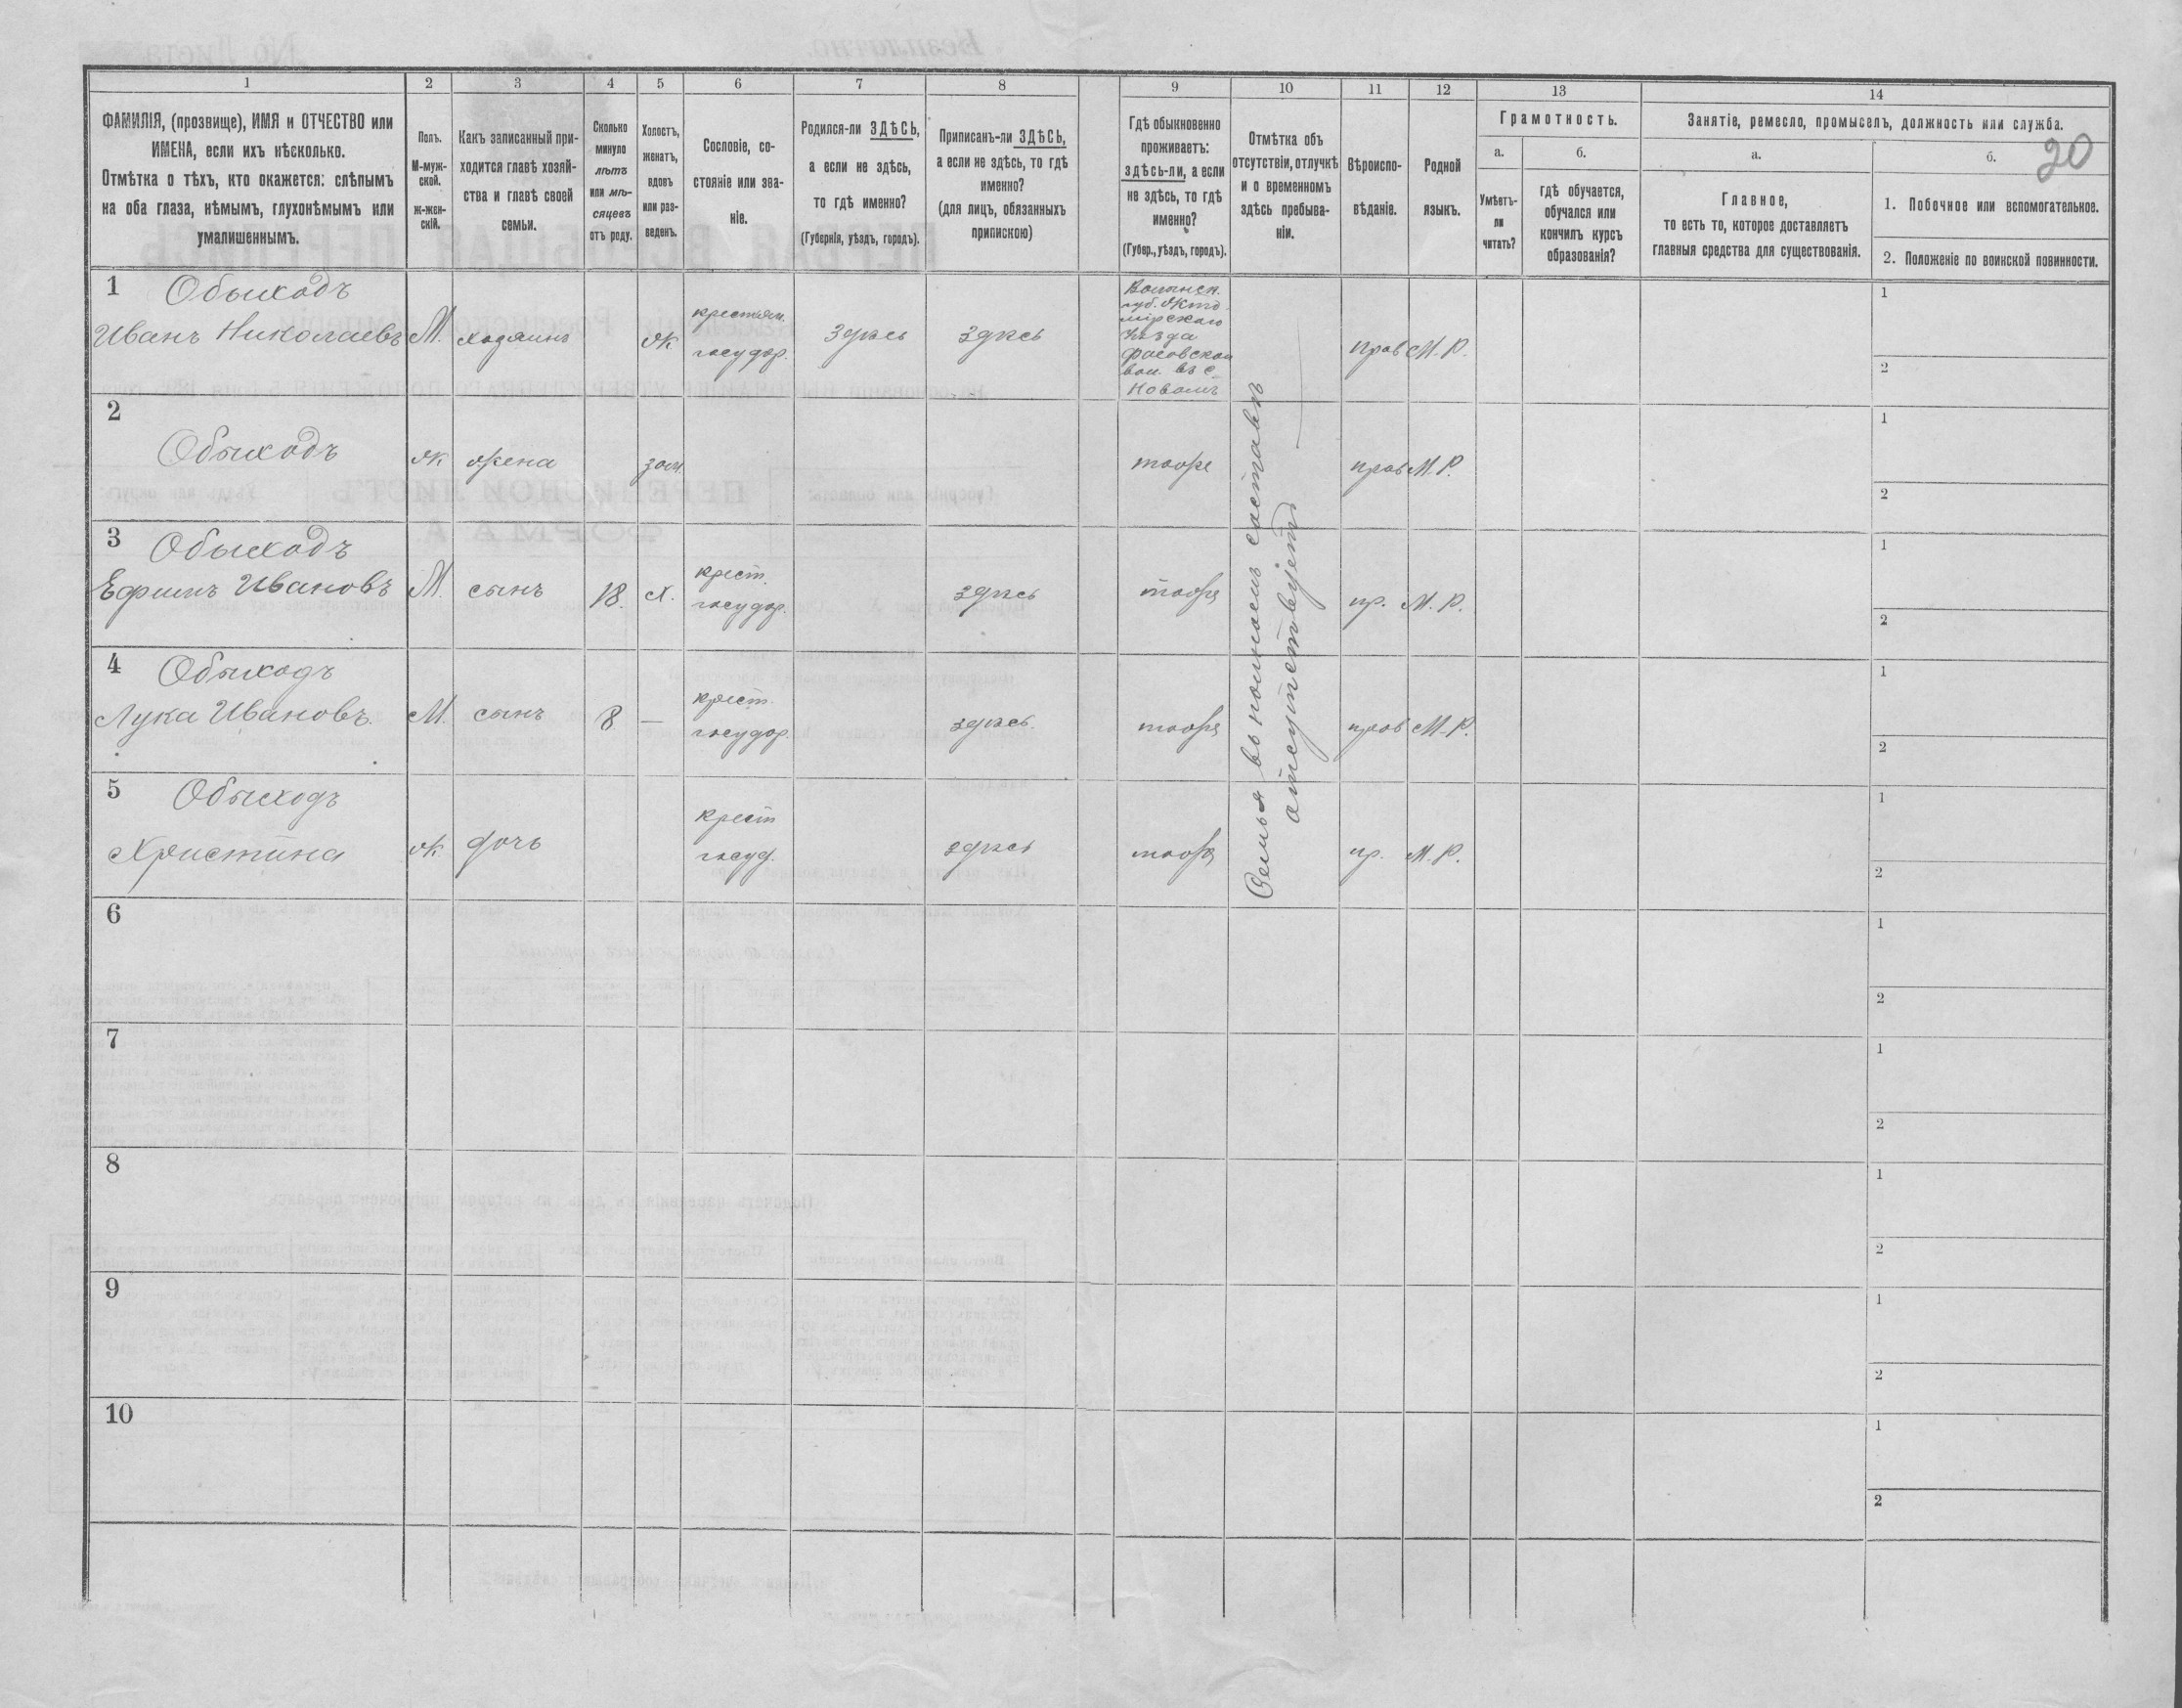 1 2 3 4 5 6 7 8 9 10 11 12 13 14
ФАМИЛІЯ, (прозвище), ИМЯ и ОТЧЕСТВО или
ИМЕНА, если ихъ нѣсколько.
Отмѣтка о тѣхъ, кто окажется: слѣпымъ
на оба глаза, нѣмымъ, глухонѣмымъ или
умалишеннымъ.
Полъ.
М-муж-
ской.
ж-жен-
скій.
Какъ записанный при-
ходится главѣ хозяй-
ства и главѣ своей
семьи.
Сколько
минуло
лѣтъ
или мѣ-
сяцевъ
отъ роду.
Холостъ,
женатъ,
вдовъ
или раз-
веденъ.
Сословіе, со-
стояніе или зва-
ніе.
Родился-ли ЗДѢСЬ,
а если не здѣсь,
то гдѣ именно?
(Губернія, уѣздъ, городъ).
Приписанъ-ли ЗДѢСЬ,
а если не здѣсь, то гдѣ
именно?
(для лицъ, обязанныхъ
припискою)
Гдѣ обыкновенно
проживаетъ:
здѣсь-ли, а если
не здѣсь, то гдѣ
именно?
(Губер., уѣздъ, городъ).
Отмѣтка объ
отсутствіи, отлучкѣ
и о временномъ
здѣсь пребыва-
ніи.
Вѣроиспо-
вѣданіе.
Родной
языкъ.
Грамотность.
а.
Умѣетъ-
ли
читать?
б.
гдѣ обучается,
обучался или
кончилъ курсъ
образованія?
Занятіе, ремесло, промыселъ, должность или служба.
а.
Главное,
то есть то, которое доставляетъ
главныя средства для существованія.
б.
20
1. Побочное или вспомогательное.
2. Положеніе по воинской повинности.
1
Обыходъ
Иванъ Николаевъ
М.
хозяинъ
Ж
крестьян.
госудор.
здѣсь
здѣсь
Волынск.
губ. Жито-
мірскаго
уѣзда
вол. въ с.
прав
М. Р.
1
2
2
Обыходъ
Ж
жена
зам.
тоже
прав
М. Р.
1
2
3
Обыходъ
Ефимъ Ивановъ
М.
сынъ
18.
Х.
крест.
госудор.
здѣсь
тоже
пр.
М. Р.
1
2
4
Обыходъ
Лука Ивановъ.
М.
сынъ
8
—
крест.
госудор.
здѣсь.
тоже
прав
М. Р.
1
2
5
Обыходъ
Христина
Ж
дочь
крест
госуд.
здѣсь
тоже
пр.
М. Р.
1
2
Семья въ полномъ составѣ
отсутствуетъ
6
1
2
7
1
2
8
1
2
9
1
2
10
1
2